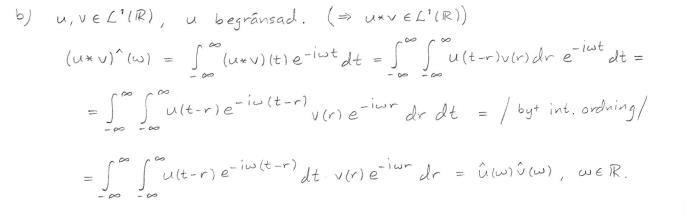 b) u, v ∈ L¹(ℝ), u begränsad. (⇒ u*v ∈ L¹(ℝ))
(u*v)^(ω) = ∫_{-∞}^{∞} (u*v)(t) e^{-iωt} dt = ∫_{-∞}^{∞} ∫_{-∞}^{∞} u(t-r)v(r)dr e^{-iωt} dt =
= ∫_{-∞}^{∞} ∫_{-∞}^{∞} u(t-r)e^{-iω(t-r)} v(r)e^{-iωr} dr dt = / byt int. ordning/
= ∫_{-∞}^{∞} ∫_{-∞}^{∞} u(t-r)e^{-iω(t-r)} dt v(r)e^{-iωr} dr = û(ω)v̂(ω), ω∈ℝ.